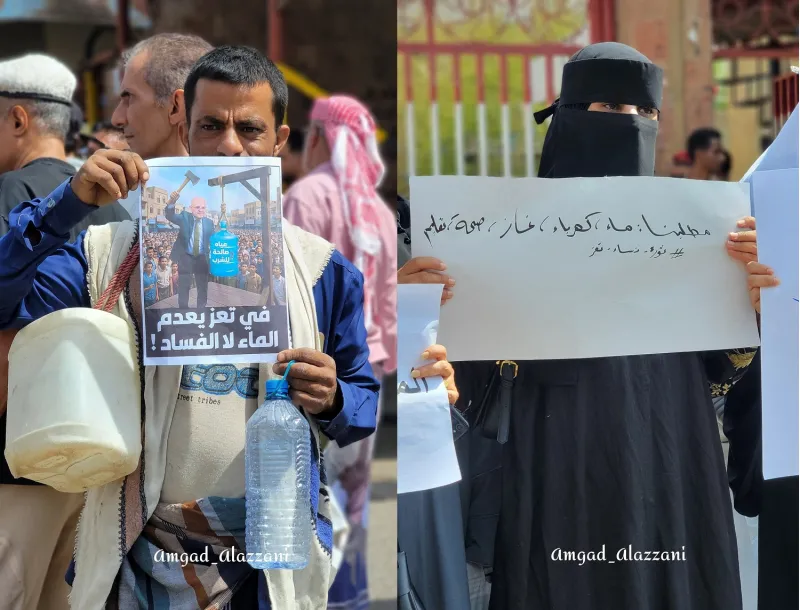 مياه
صالحة
للشرب
في تعز يعدم
الماء لا الفساد !
street tribes
Amgad_Alazzani
مطلبنا : ماء ، كهرباء ، غاز ، صحة ، تعليم
ثورة نساء تعز
Amgad_Alazzani